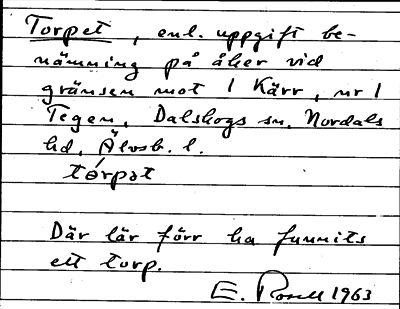 Torpet, enl. uppgift be-
nämning på åker vid
gränsen mot 1 Kärr, nr 1
Tegen, Dalskogs sn, Nordals
hd, Älvsb. l.
tórpat
Där lär förr ha funnits
ett torp.
E. Rosell 1963